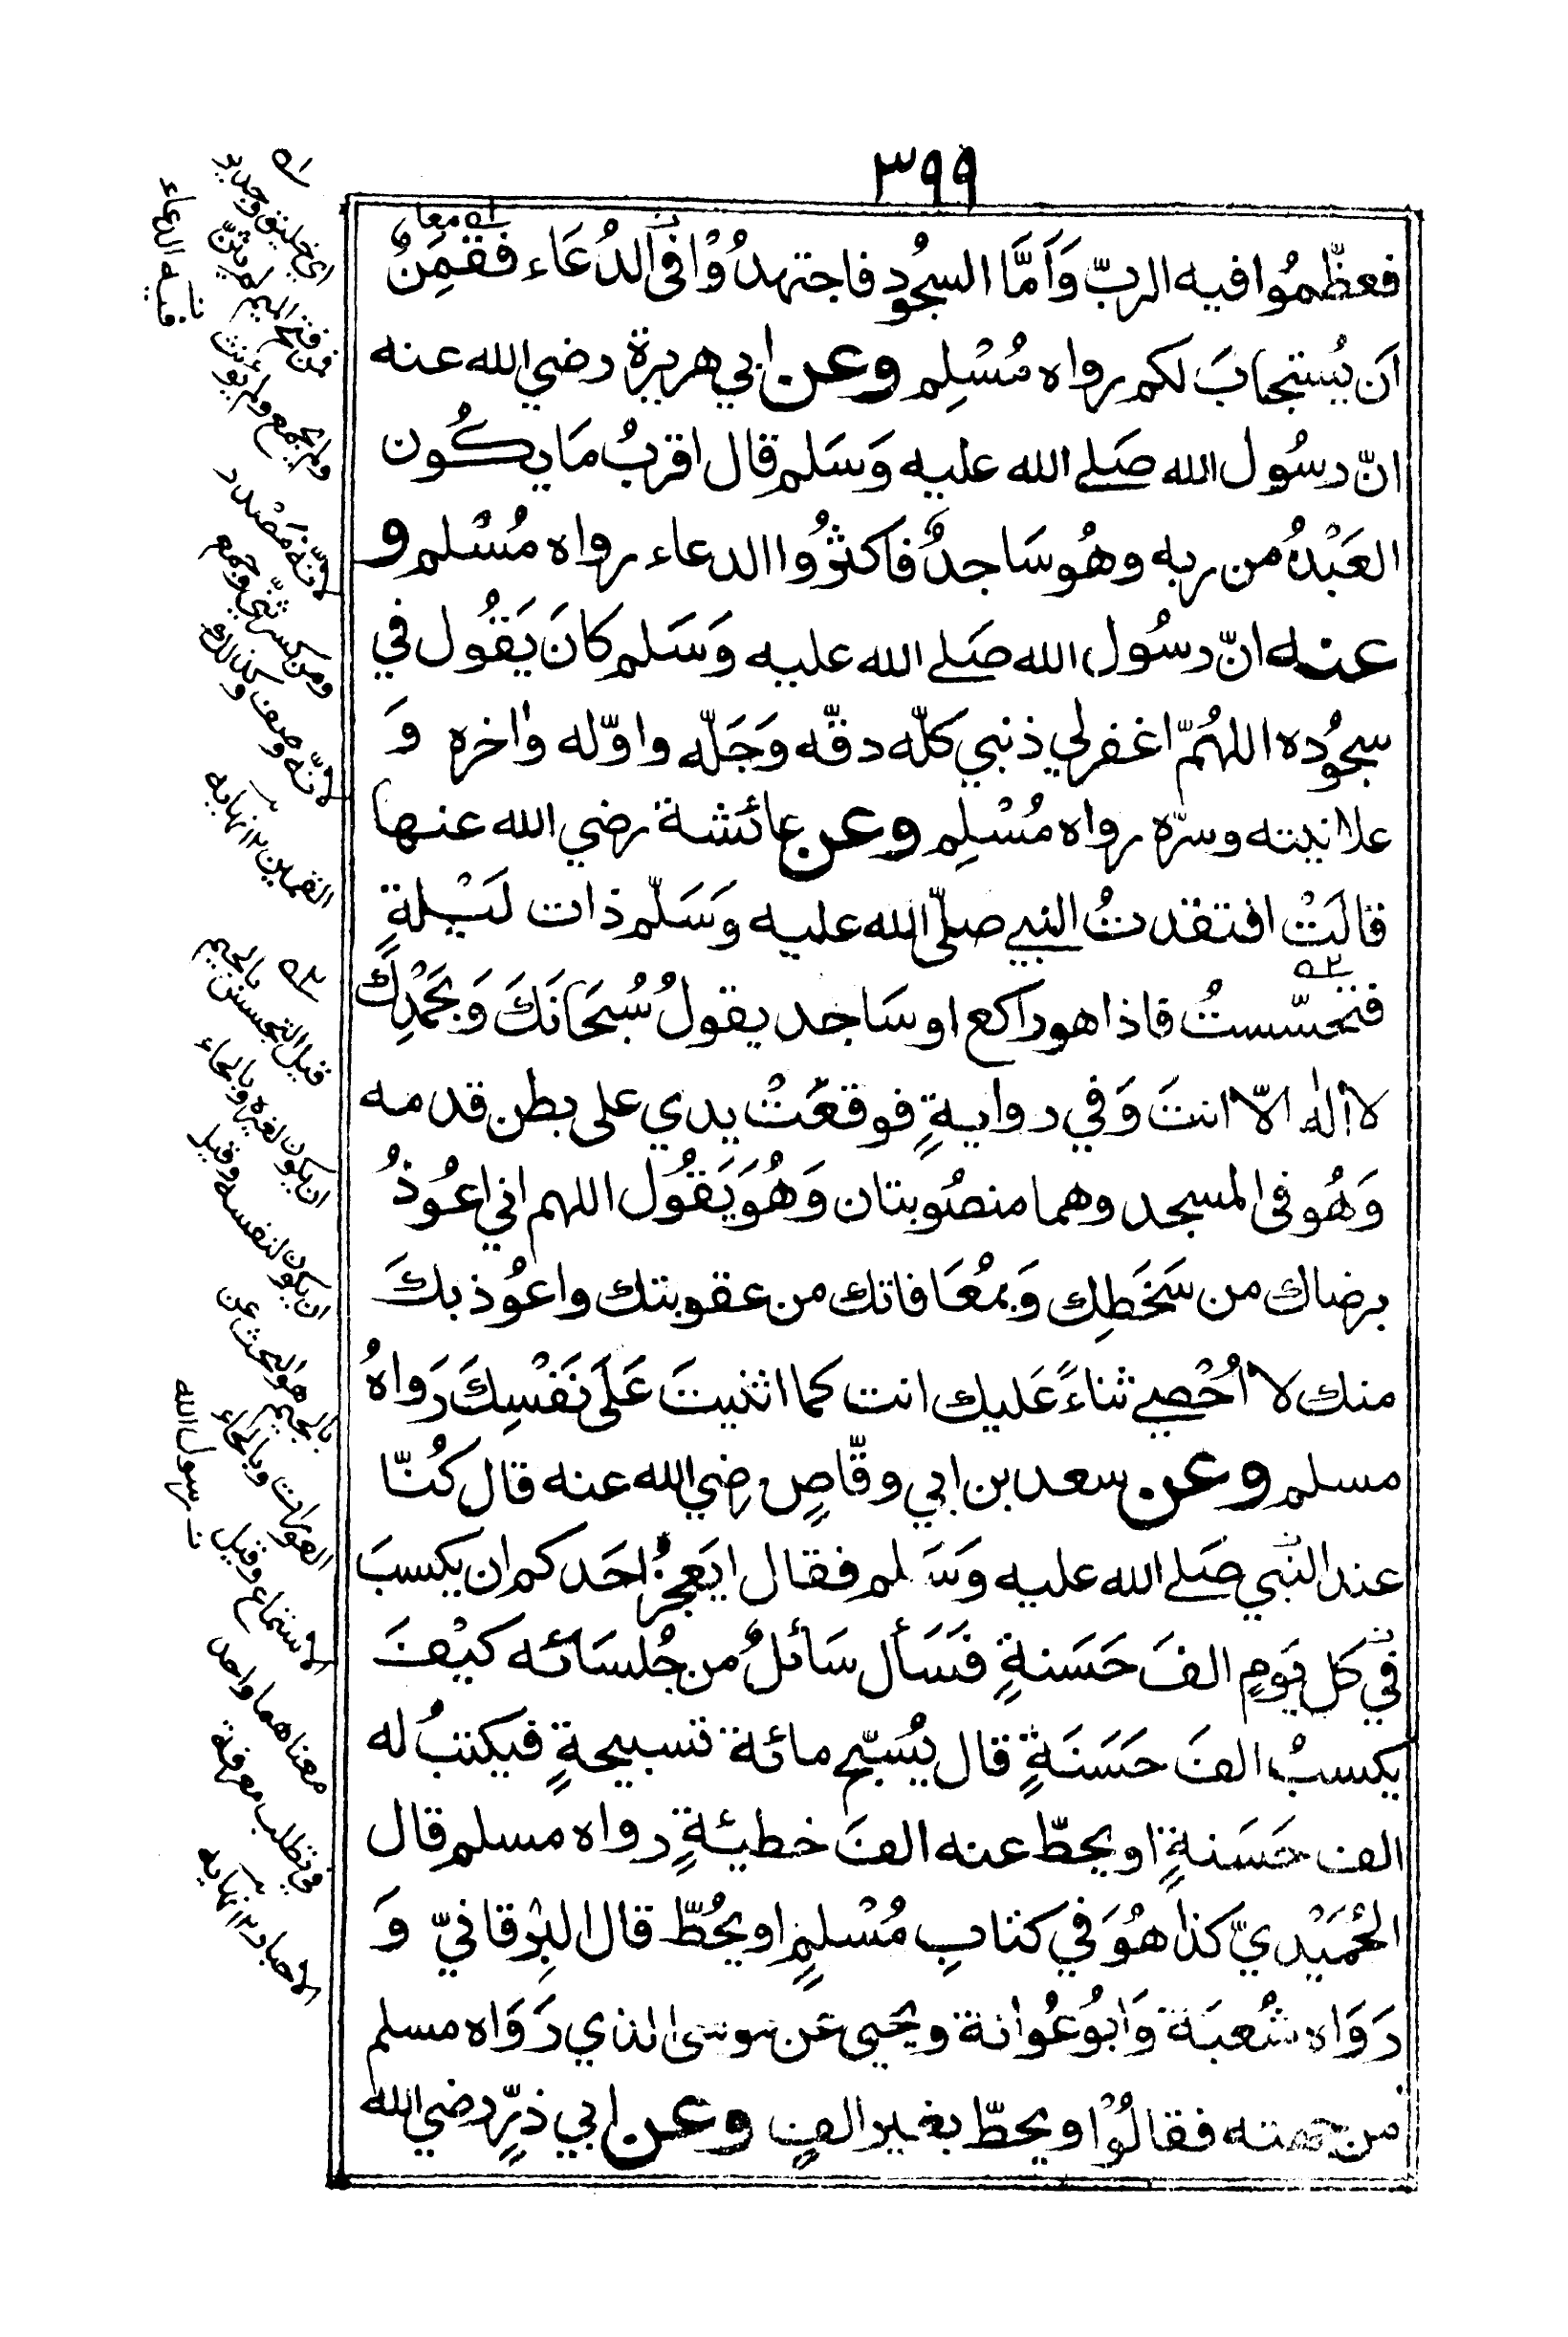 ٣٩٩
فعظّمُوا فيه الربّ وَاَمَّا السجُود فاجتهدُوْا فى الدُعَاء فقَمِنٌ
اَن يُستجابَ لكم رواه مُسْلِم وعن ابي هريرة رضي الله عنه
انّ رسُول الله صَلى الله عليه وَسَلم قال اقربُ مَا يكُون
العَبْدُ من ربه وهُو سَاجدٌ فاكثرُوا الدعاء رواه مُسْلم و
عنه انّ رسُول الله صَلى الله عليه وَسَلم كانَ يَقُول في
سجُوده اللهُمّ اغفرلي ذنبي كلّه دقّه وَجَلّه واوّله واٰخره وَ
علانيته وسرّه رواه مُسْلِم وعن عائشة رضي الله عنها
قالَتْ افتقدتُ النبي صلّى الله عليه وَسَلّم ذات لَيْلةٍ
فتحسّستُ فاذا هو راكع او سَاجد يقولُ سُبحَانَكَ وَبحَمْدِكَ
لا اِلٰه الّا انتَ وَفي روايةٍ فوقعَتْ يدي على بطن قدمه
وَهُو فى المسجد وهما منصُوبتان وَهُوَ يَقُول اللهم اني اعُوذُ
برضاك من سَخَطِك وَبمُعَافاتك من عقوبتك واعُوذ بكَ
منك لا اُحْصي ثناءً عَليك انت كما اثنيتَ عَلَى نَفْسِكَ رَواهُ
مسلم وعن سعد بن ابي وقّاصٍ رضي الله عنه قال كُنّا
عند النّبي صَلى الله عليه وَسَلم فقال ايَعجزُ احَدكم ان يكسبَ
في كل يَومٍ الفَ حَسَنةٍ فَسَأل سَائلٌ من جُلسَائه كيْفَ
يكسبُ الفَ حَسَنَةٍ قال يُسَبّح مائة تسبيحةٍ فيكتبُ له
الف حَسَنةٍ او يحطّ عنه الفَ خطيئةٍ رواه مسلم قال
الحُمَيْديّ كذا هُوَ في كتابِ مُسْلمٍ او يحُطّ قال البِرْقانيّ وَ
رَوَاه شُعبَة وَابُو عُوانة ويحيى عن موسى الذي رَوَاه مسلم
من جهته فقالُوْا ويحطّ بغير الفٍ وعن ابي ذرٍّ رضي الله
١ه
اي خليق وجدير
فمن فتح الميم لم يثنّ
ولم يجمع ولم يؤنث
لانّه مَصْدر
ومن كسر ثنّى وجمع
لانّه وصف وكذلك
القمين ١٢ نهايه
فيه الدعاء
٢ه
بالجيم
قيل التجسس
ان يكون لغيره وبالحاء
ان يكون لنفسه وقيل
بالجيم هو البحث عن
العورات وبالحاء
الاستماع وقيل
معناهما واحد
في تطلب معرفة
الاخبار ١٢ نهايه
رسول الله